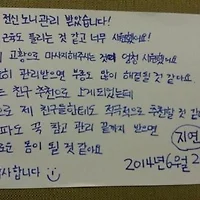 전신 노니관리 받았습니다!
근육도 풀리는 것 같고 너무 시원했어요!
고황으로 마사지해주시는 것이 엄청 시원했어요
히 관리받으면 부종도 많이 해결될 것 같아요
는 친구 추천으로 오게되었는데
으로 제 친구들한테도 적극적으로 추천할 것 같아요
파도 꼭 참고 관리 끝까지 받으면
운 몸이 될 것 같아요
지연
사합니다
2014년 6월 2